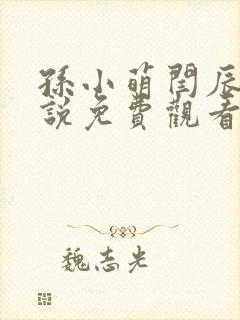 孫小萌閆辰
說免費觀看
魏志光